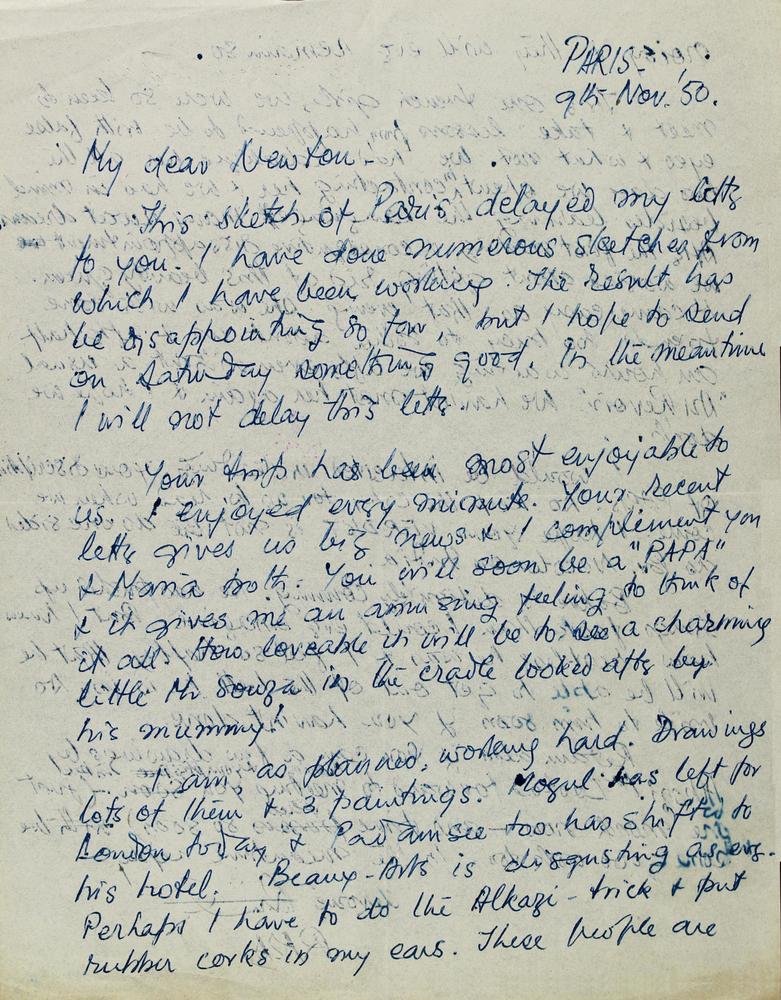 PARIS -
9th Nov. '50.
My dear Newton -
This sketch of Paris delayed my letter
to you. I have done numerous sketches from
which I have been working. The result has
be disappointing so far, but I hope to send
on Saturday something good. In the meantime
I will not delay this letter.
Your trip has been most enjoyable to
us. I enjoyed every minute. Your recent
letter gives us big news & I complement you
& Maria both. You will soon be a "PAPA"
& it gives me an amusing feeling to think of
it all. How loveable it will be to see a charming
little Mr Souza in the cradle looked after by
his mummy!
I am, as planned, working hard. Drawings
lots of them & 3 paintings. Mogul has left for
London today & Padamsee too has shifted to
his hotel. Beaux-Arts is disgusting as ever.
Perhaps I have to do the Alkazi-trick & put
rubber corks in my ears. These people are